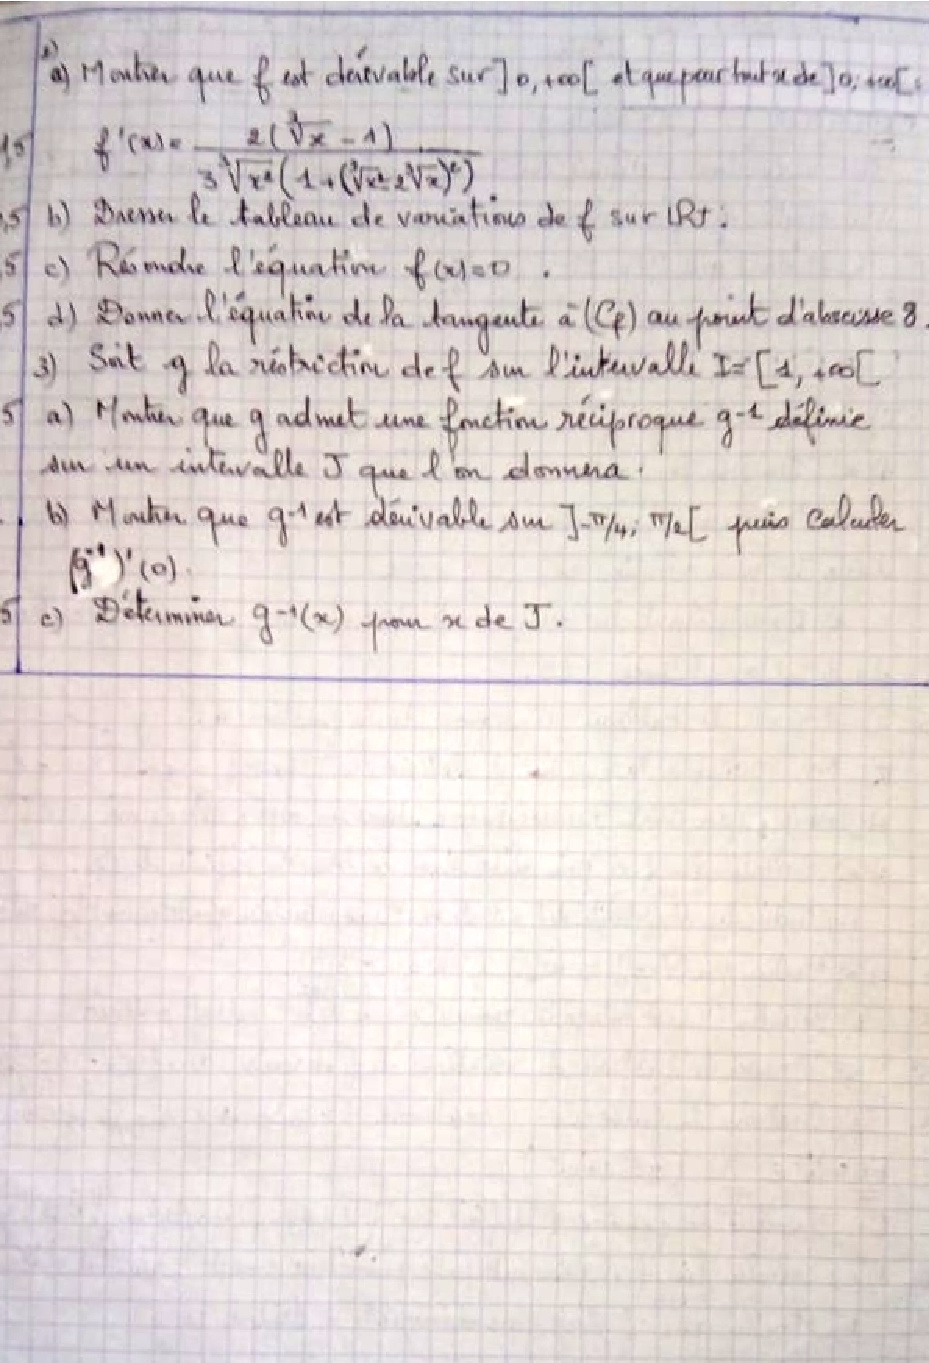 2)
a) Montrer que f est dérivable sur ]0,+∞[ et que pour tout x de ]0;+∞[:
1,5 f'(x)= 2(∛x - 1) / 3∛x²(1+(∛x²-2∛x)²)
,5 b) Dresser le tableau de variations de f sur IR+.
5 c) Résoudre l'équation f(x)=0.
5 d) Donner l'équation de la tangente à (Cf) au point d'abscisse 8.
3) Soit g la réstriction de f sur l'intervalle I=[1,+∞[
5 a) Montrer que g admet une fonction réciproque g-1 définie
sur un intervalle J que l'on donnera.
b) Montrer que g-1 est dérivable sur ]-π/4; π/2[ puis Calculer
(g-1)'(0).
5 c) Déterminer g-1(x) pour x de J.